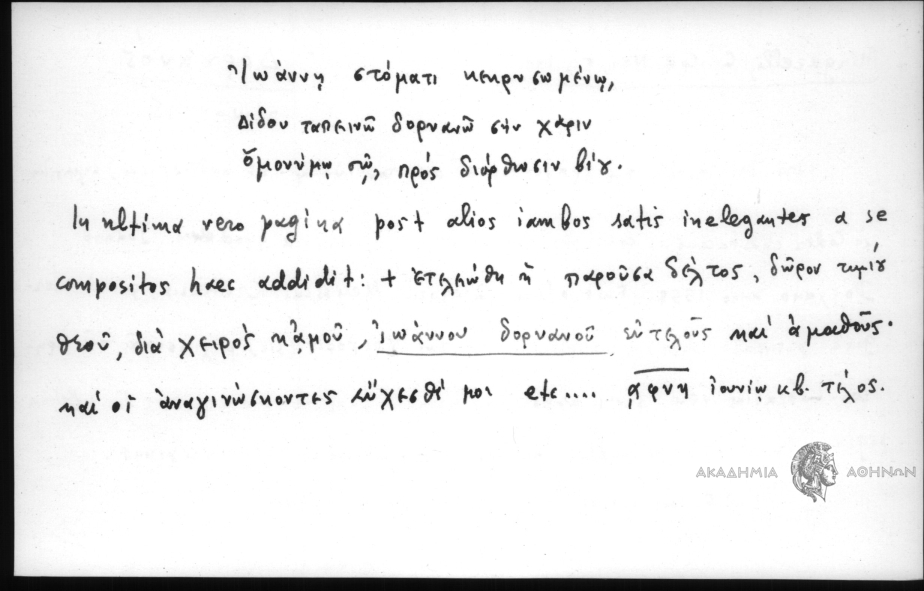 Ἰωάννῃ στόματι κεχρυσωμένῳ,
Δίδου ταπεινῶ δορυανῶ σὴν χάριν
Ὁμονύμῳ σῷ, πρὸς διόρθωσιν βίου.
In ultima vero pagina post alios iambos satis inelegantes a se
compositos haec addidit: + ἐτελειώθη ἡ παροῦσα δέλτος, δῶρον τιμίου
θεοῦ, διὰ χειρὸς κἀμοῦ, Ἰωάννου δορυανοῦ εὐτελοῦς καὶ ἀμαθοῦς.
καὶ οἱ ἀναγινώσκοντες εὔχεσθέ μοι etc.... ͵αφνη ἰουνίῳ κβ. τέλος.
ΑΚΑΔΗΜΙΑ ΑΘΗΝΩΝ